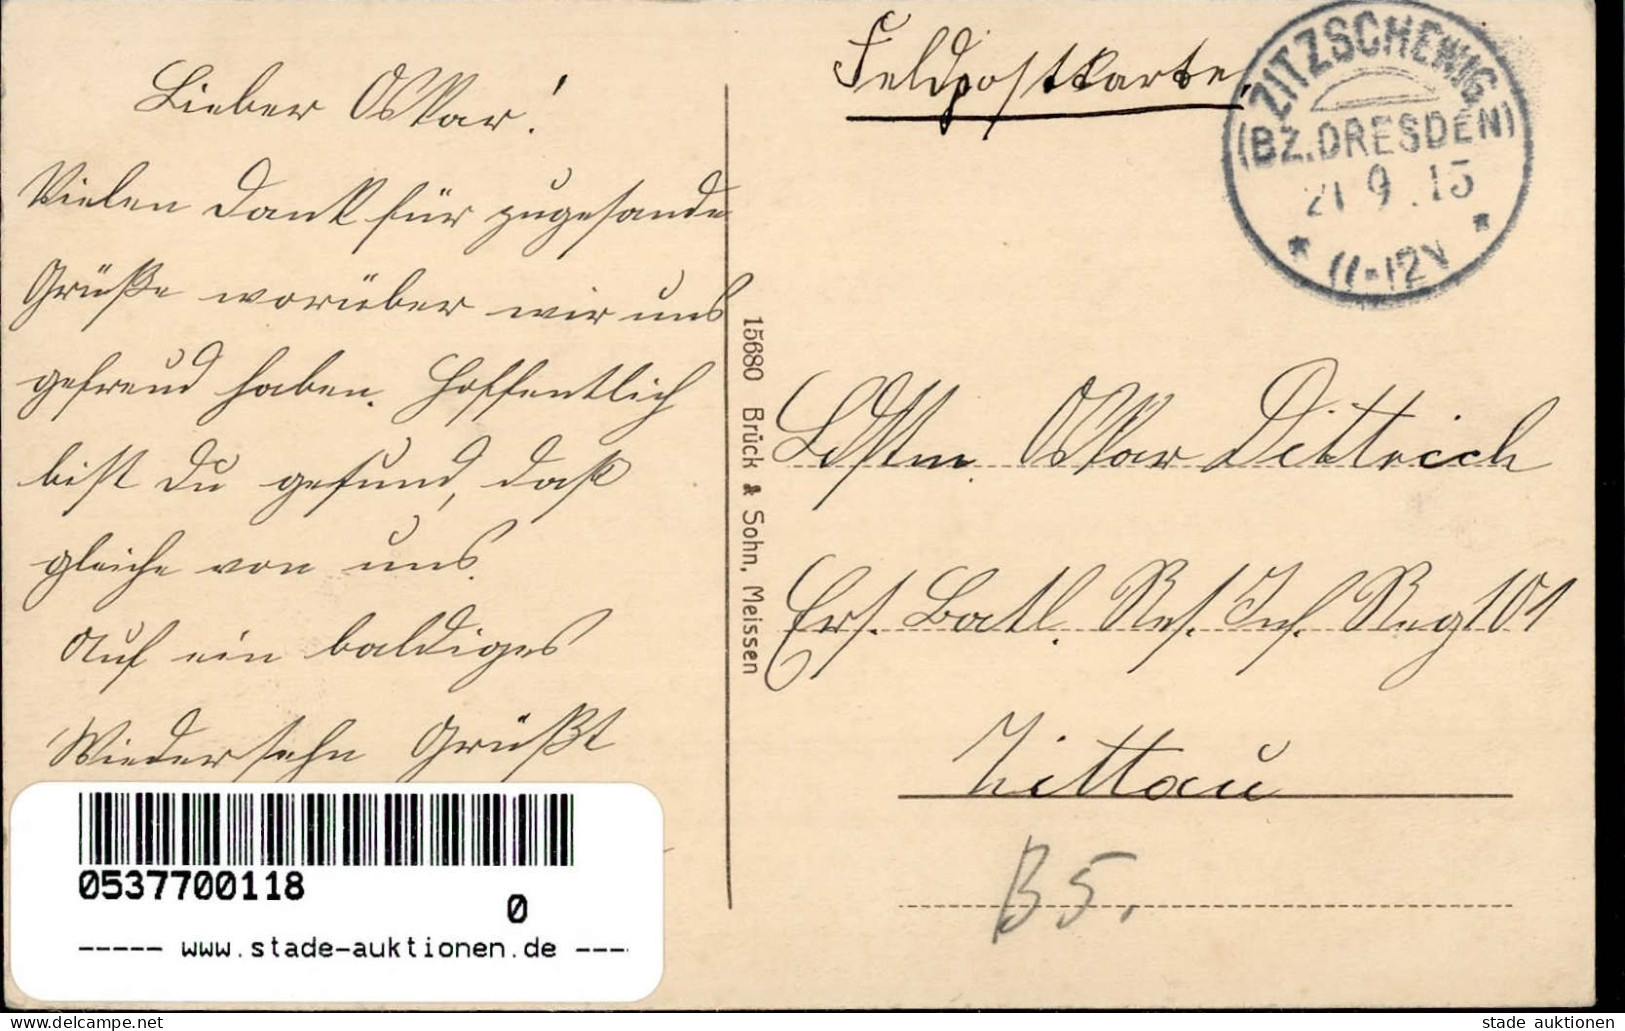 Lieber Oskar!
Vielen Dank für zugesande
Grüße worüber wir uns
gefreud haben. Hoffentlich
bist Du gesund, daß
gleiche von uns.
Auf ein baldiges
Wiedersehn Grüßt
Feldpostkarte.
ZITZSCHEWIG
(BZ. DRESDEN)
21 9 .15
* 11-12V *
15680 Brück & Sohn, Meissen
Ldstm. Oskar Dittrich
Ers. Batl. Res. Inf. Reg 101
Zittau
B5.
0537700118
0
----- www.stade-auktionen.de ----
stade auktionen